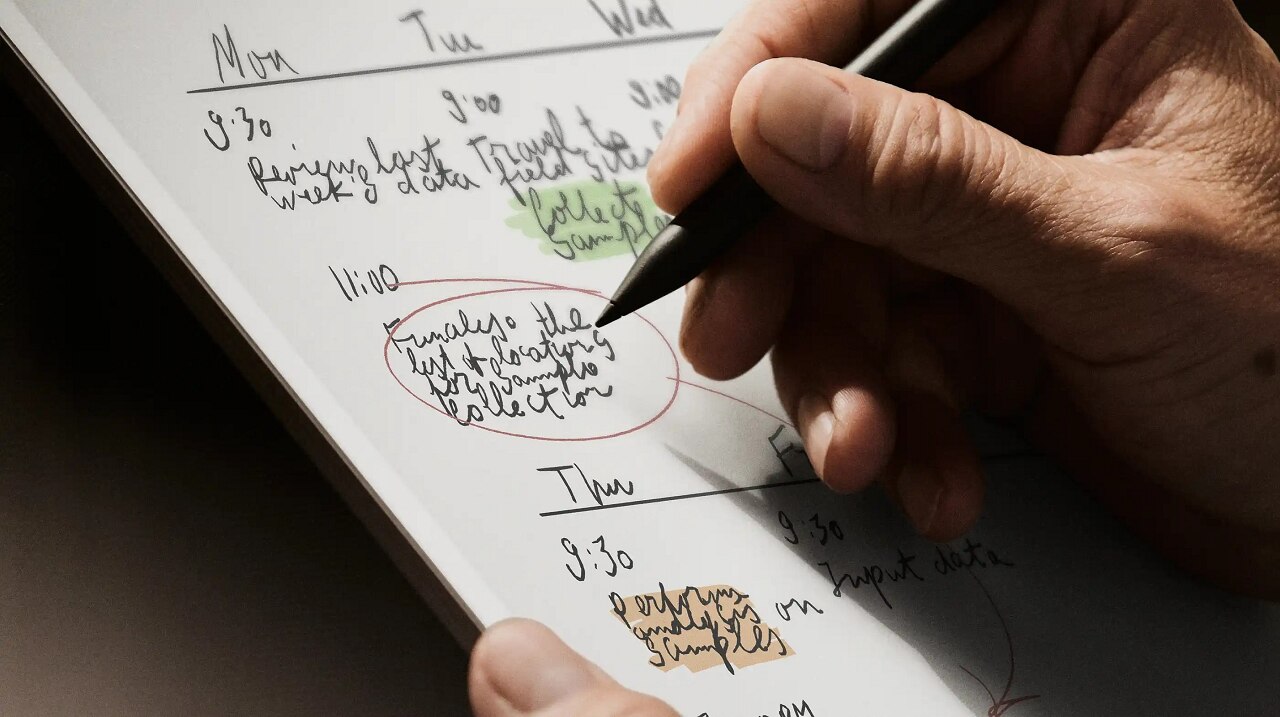 Mon Tue Wed
9:30
Reviewing last
week's data
9:00
Travel to
field sites
Collect
samples
9:00
11:00
Finalyse the
list + locations
for sample
collection
Thu F
9:30
perform
analysis on
samples
9:30
Input data